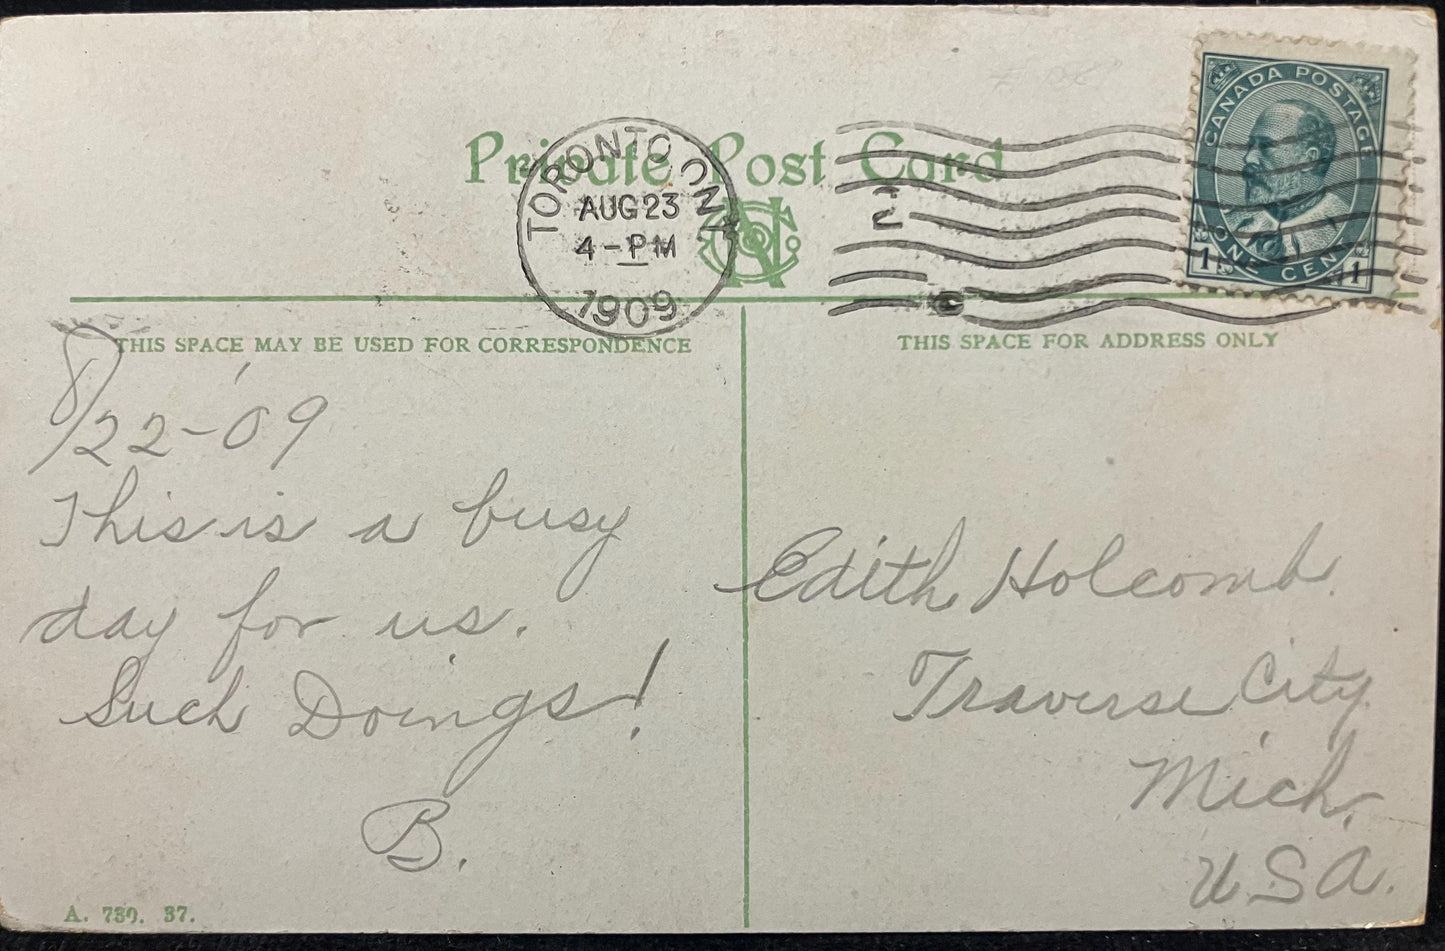 Private Post Card
TORONTO ONT
AUG 23
4-PM
1909
CANADA POSTAGE
1 ONE CENT 1
THIS SPACE MAY BE USED FOR CORRESPONDENCE
THIS SPACE FOR ADDRESS ONLY
8/22-'09
This is a busy
day for us.
Such Doings!
B.
Edith Holcomb.
Traverse City
Mich.
USA.
A. 730. 37.